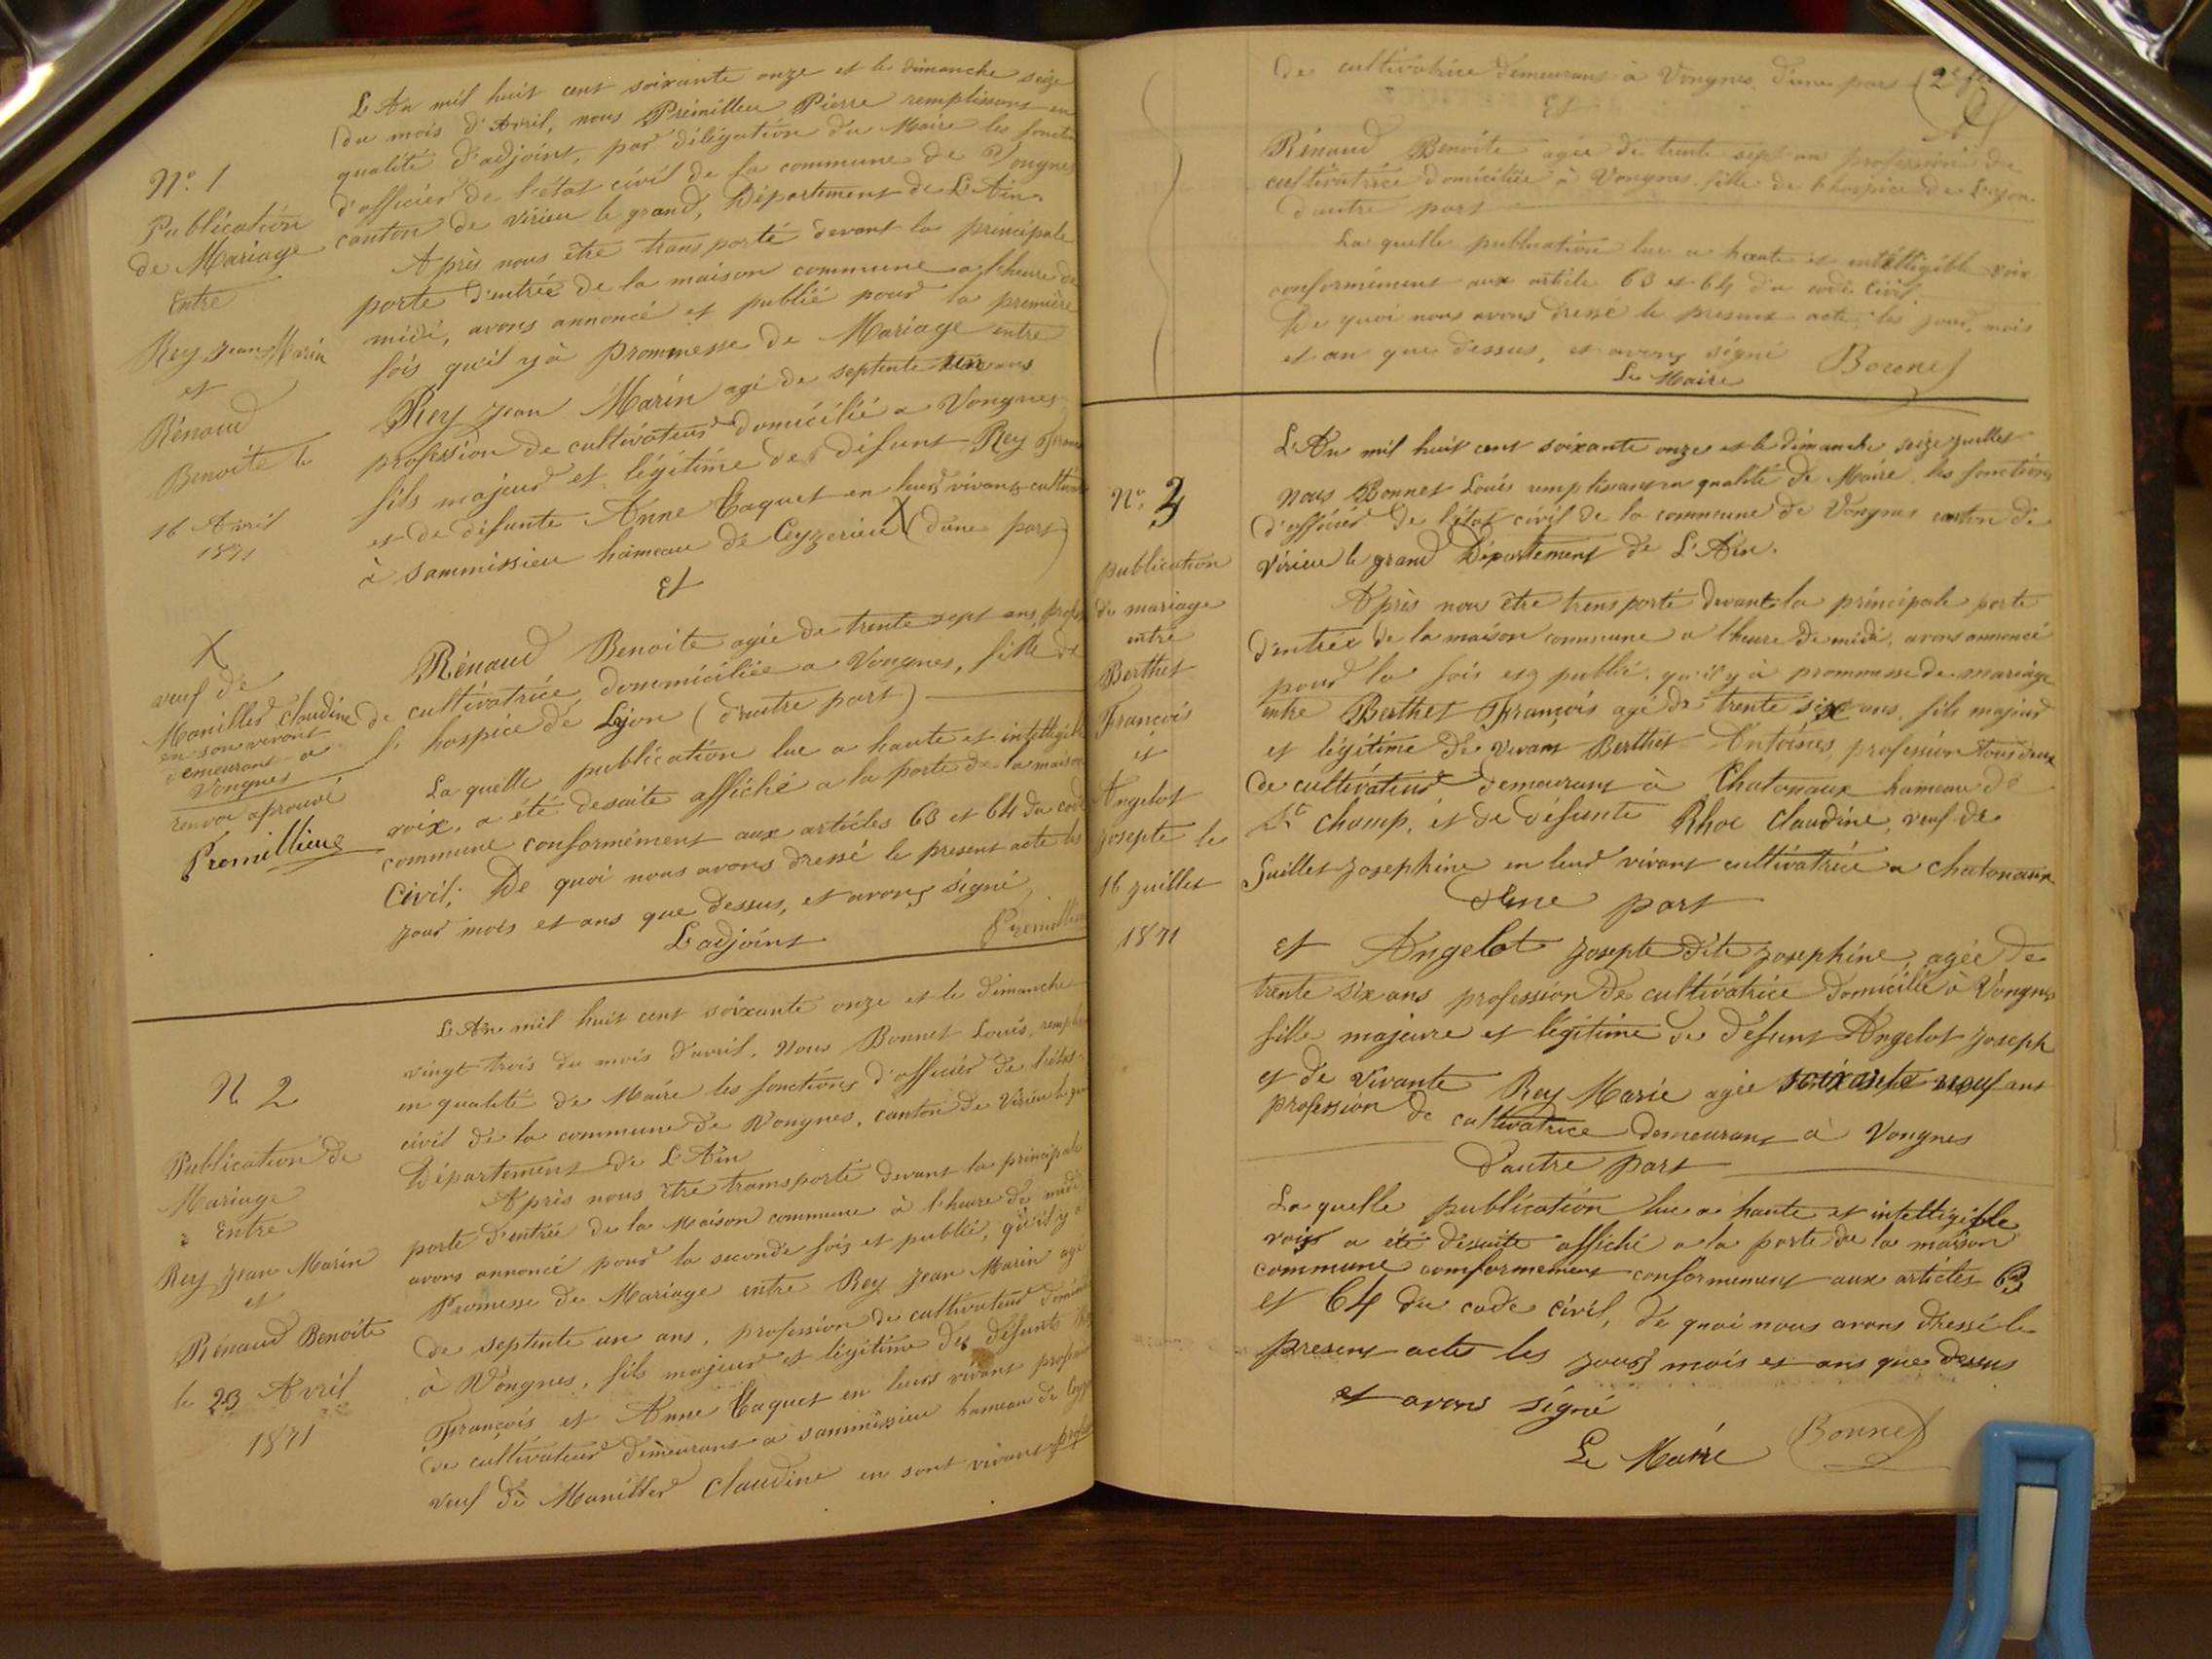 N.o 1
Publication
de Mariage
Entre
Rey Jean Marin
et
Rénaud
Benoite le
16 Avril
1871
L'An mil huit cent soixante onze et le dimanche seize
du mois d'Avril, nous Prémillieu Pierre remplissant en
qualité d'adjoint, par délégation du Maire les foncti
d'officier de l'état civil de la commune de Vongnes
canton de Virieu le grand, Département de L'Ain.
Après nous être transporté devant la principale
porte d'entrée de la maison commune a l'heure de
midi, avons annoncé et publié pour la première
fois qu'il y à prommesse de Mariage entre
Rey Jean Marin agé de septente un ans
profession de cultivateur domicilié a Vongnes
fils majeur et légitime des défunt Rey
et de défunte Anne Caquet en leurs vivants cultiva
à Sammissieu hameau de Ceyzerieu X (d'une part)
Et
Rénaud Benoite agée de trente sept ans, profess
de cultivatrice dommiciliée a Vongnes, fille de
l'hospice de Lyon (d'autre part)
X
veuf de
Maniller Claudine
en son vivant
demeurant a
Vongnes
renvoi aprouvé
Premillieu
La quelle publication lue a haute et intelligible
voix, a été desuite affiché a la porte de la maison
commune conformément aux articles 63 et 64 du code
Civil; De quoi nous avons dressé le present acte les
jour mois et ans que dessus, et avons signé
L'adjoint Prémillieu
N 2
Publication de
Mariage
Entre
Rey Jean Marin
et
Rénaud Benoite
le 23 Avril
1871
L'An mil huit cent soixante onze et le dimanche
vingt trois du mois d'avril, Nous Bonnet Louis, rempli
en qualité de Maire les fonctions d'officier de l'état
civil de la commune de Vongnes, canton de Virieu le gran
Département de L'Ain
Après nous être transporté devant la principale
porte d'entrée de la Maison commune à l'heure de midi
avons annoncé pour la seconde fois et publié, qu'il y a
Promesse de Mariage entre Rey Jean Marin agé
de septente un ans, profession de cultivateur domicil
à Vongnes, fils majeur et légitime des défunts Rey
François et Anne Caquet en leurs vivant profession
de cultivateur demeurant a Sammissieu hameau de Ceyze
veuf de Maniller Claudine en sont vivant profes
de cultivatrice demeurant à Vongnes, d'une part
Et
Rénaud Benoite agée de trente sept ans profession de
cultivatrice domiciliée à Vongnes fille de l'hospice de Lyon
d'autre part
La quelle publication lue a haute et intelligible voix
conformément aux article 63 et 64 du code Civil.
De quoi nous avons dressé le present acte, les jour, mois
et an que dessus, et avons signé
Le Maire Bonnet
N.o 3
publication
de mariage
entre
Berthet
François
et
Angelot
Josepte le
16 juillet
1871
L'An mil huit cent soixante onze et le dimanche seize juillet
Nous Bonnet Louis remplissant en qualité de Maire les fonctions
d'officier de l'état civil de la commune de Vongnes canton de
Virieu le grand Département de L'Ain.
Après nou être transporté devant la principale porte
d'entrée de la maison commune a l'heure de midi, avons annoncé
pour la fois et publié, qu'il y à prommesse de mariage
entre Berthet François agé de trente six ans, fils majeur
et légitime de vivant Berthet Antoines, profession tous deux
de cultivateur demeurant à Chatonaux hameau de
St Champ, et de défunte Rhoe Claudine, veuf de
Guillet Josephine en leur vivant cultivatrice a Chatonaux
d'une part
et Angelot Josepte dite Josephine, agée de
trente six ans profession de cultivatrice domicilié à Vongnes
fille majeure et légitime de défunt Angelot Joseph
et de vivante Rey Marie agée soixante neuf ans
profession de cultivatrice demeurant à Vongnes
d'autre part
La quelle publication lue a haute et intelligible
voix a été desuite affiché a la porte de la maison
commune comformement conformement aux articles 63
et 64 du code civil, de quoi nous avons dressé le
present acte les jours mois et ans que dessus
et avons signé
Le Maire Bonnet